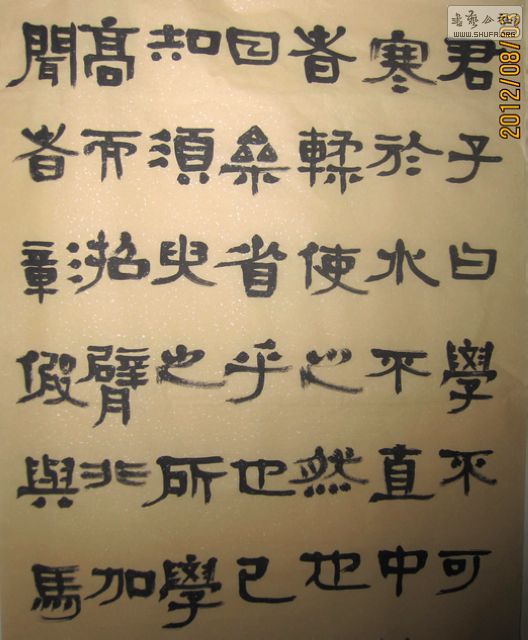 君子白學不可
寒於水不直中
者輮使之然也
日參省乎也己
知須臾之所學
高而招臂非加
聞者彰假與馬
书艺公社
WWW.SHUFA.ORG
2012/08/